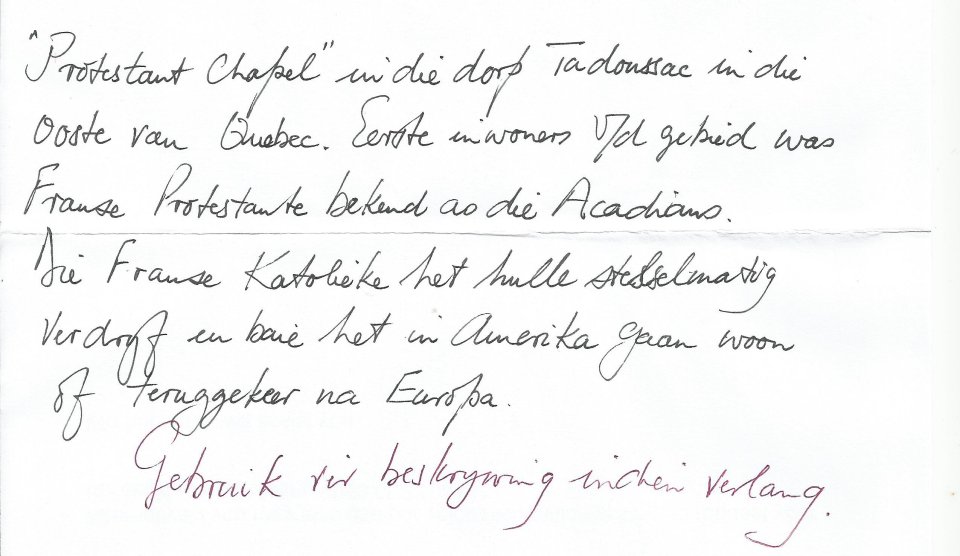 "Protestant Chapel" in die dorp Tadoussac in die
Ooste van Quebec. Eerste inwoners v/d gebied was
Franse Protestante bekend as die Acadians.
Die Franse Katolieke het hulle stelselmatig
verdryf en baie het in Amerika gaan woon
of teruggekeer na Europa.
Gebruik vir beskrywing indien verlang.